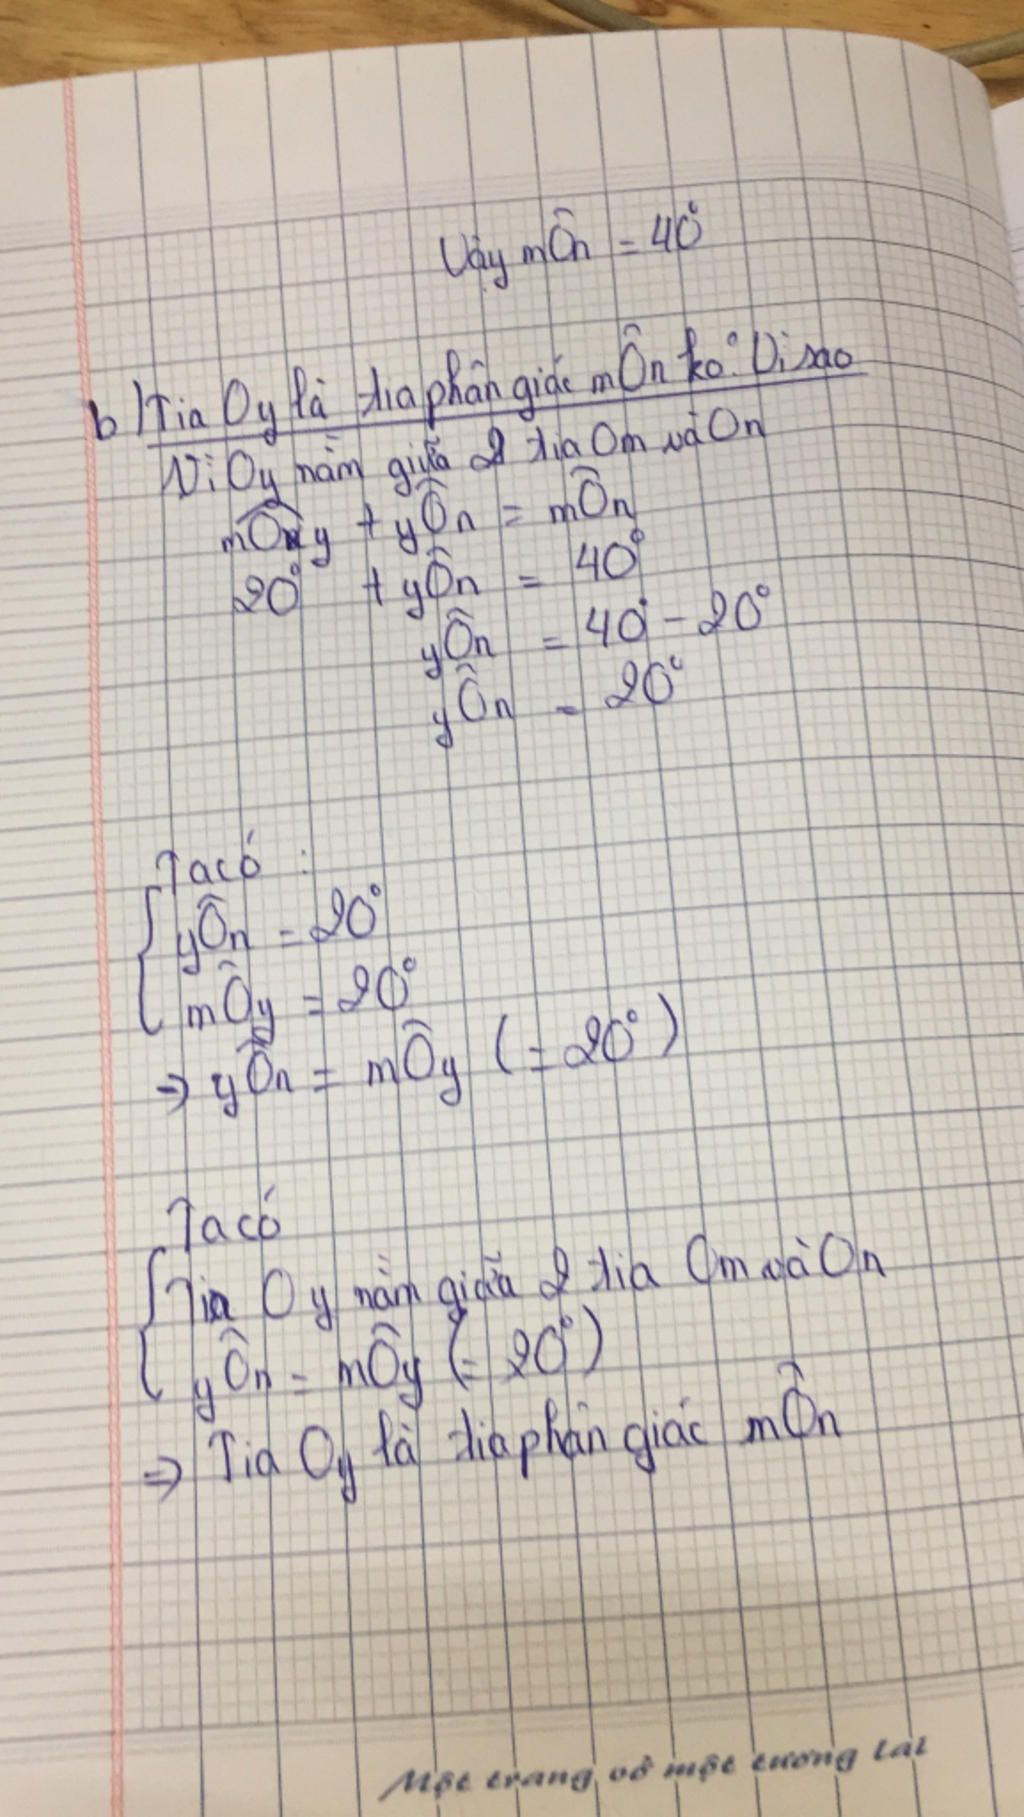 Vậy mÔn = 40°
b) Tia Oy là tia phân giác mÔn ko? Vì sao
Vì Oy nằm giữa 2 tia Om và On
mÔy + yÔn = mÔn
20° + yÔn = 40°
yÔn = 40° - 20°
yÔn = 20°
Ta có :
{ yÔn = 20°
mÔy = 20°
=> yÔn = mÔy (= 20°)
Ta có
{ Tia Oy nằm giữa 2 tia Om và On
yÔn = mÔy (= 20°)
=> Tia Oy là tia phân giác mÔn
Một trang vở một tương lai